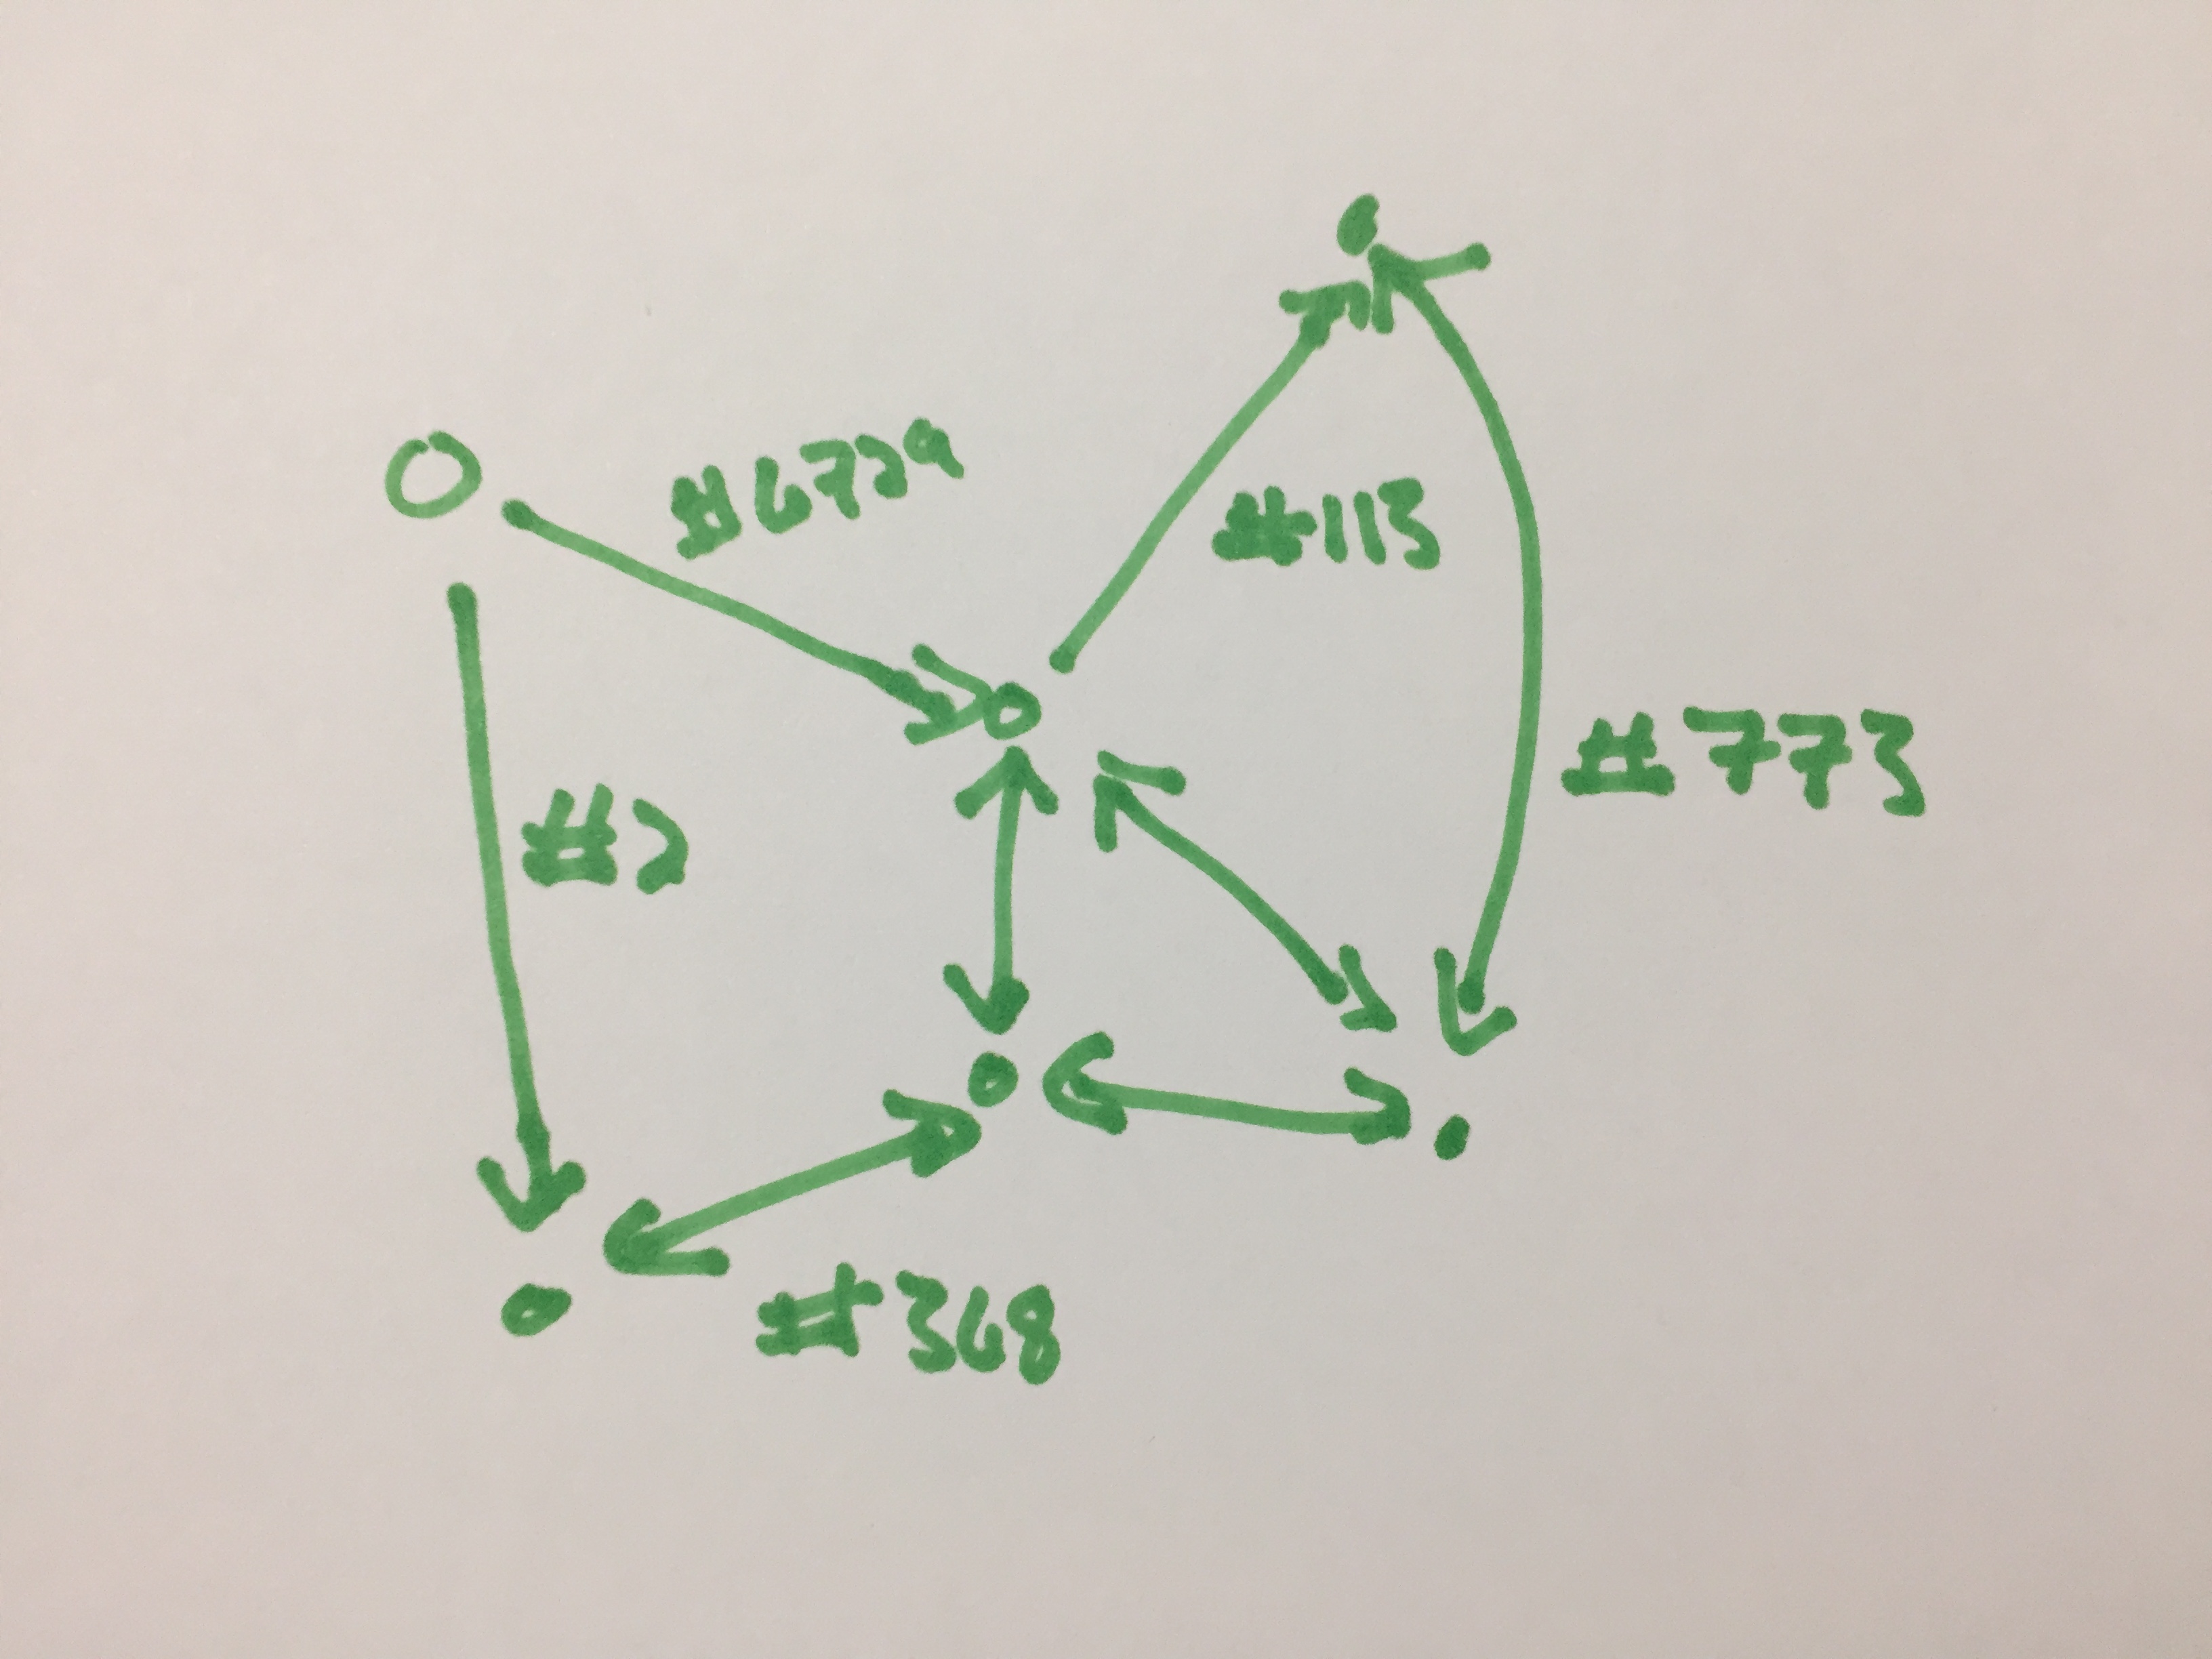 #6729
#113
#773
#2
#368